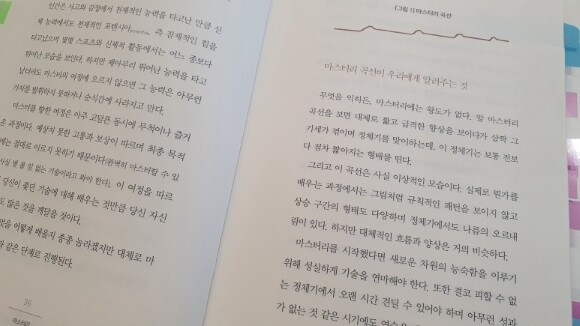 인간은 사고와 감정에서 천재적인 능력을 타고난 만큼 신
체 능력에서도 천재적인 포텐시아, 즉 잠재적인 힘을
타고났으며 몇몇 스포츠와 신체적 활동에서는 어느 종보다
뛰어난 모습을 보인다. 하지만 제아무리 뛰어난 능력을 타고
났더라도 마스터의 여정에 오르지 않으면 그 능력은 아무런
가치를 발휘하지 못하거나 순식간에 사라지고 만다.
마스터를 향한 여정은 아주 고달픈 동시에 무척이나 즐거
운 과정이다. 예상치 못한 고통과 보상이 따르며 최종 목적
에는 절대로 이르지 못하기 때문이다(완벽히 마스터할 수 있
사실 별 볼 일 없는 기술이라고 봐야 한다). 이 여정을 따르
당신이 좇던 기술에 대해 배우는 것만큼 당신 자신
도 많은 것을 깨닫을 것이다.
엇을 어떻게 배울지 종종 놀라겠지만 대체로 마
과 같은 단계로 진행된다.
26
마스터리
[그림 1] 마스터리 곡선
마스터리 곡선이 우리에게 알려주는 것
무엇을 익히든, 마스터리에는 왕도가 없다. 일 마스터리
곡선을 보면 대체로 짧고 급격한 향상을 보이다가 살짝 그
기세가 꺾이며 정체기를 맞이하는데, 이 정체기는 보통 전보
다 점차 짧아지는 형태를 띤다.
그리고 이 곡선은 사실 이상적인 모습이다. 실제로 뭔가를
배우는 과정에서는 그림처럼 규칙적인 패턴을 보이지 않고
상승 구간의 형태도 다양하며 정체기에서도 나름의 오르내
림이 있다. 하지만 대체적인 흐름과 양상은 거의 비슷하다.
마스터리를 시작했다면 새로운 차원의 능숙함을 이루기
위해 성실하게 기술을 연마해야 한다. 또한 결코 피할 수 없
는 정체기에서 오랜 시간 견딜 수 있어야 하며 아무런 성과
가 없는 것 같은 시기에도